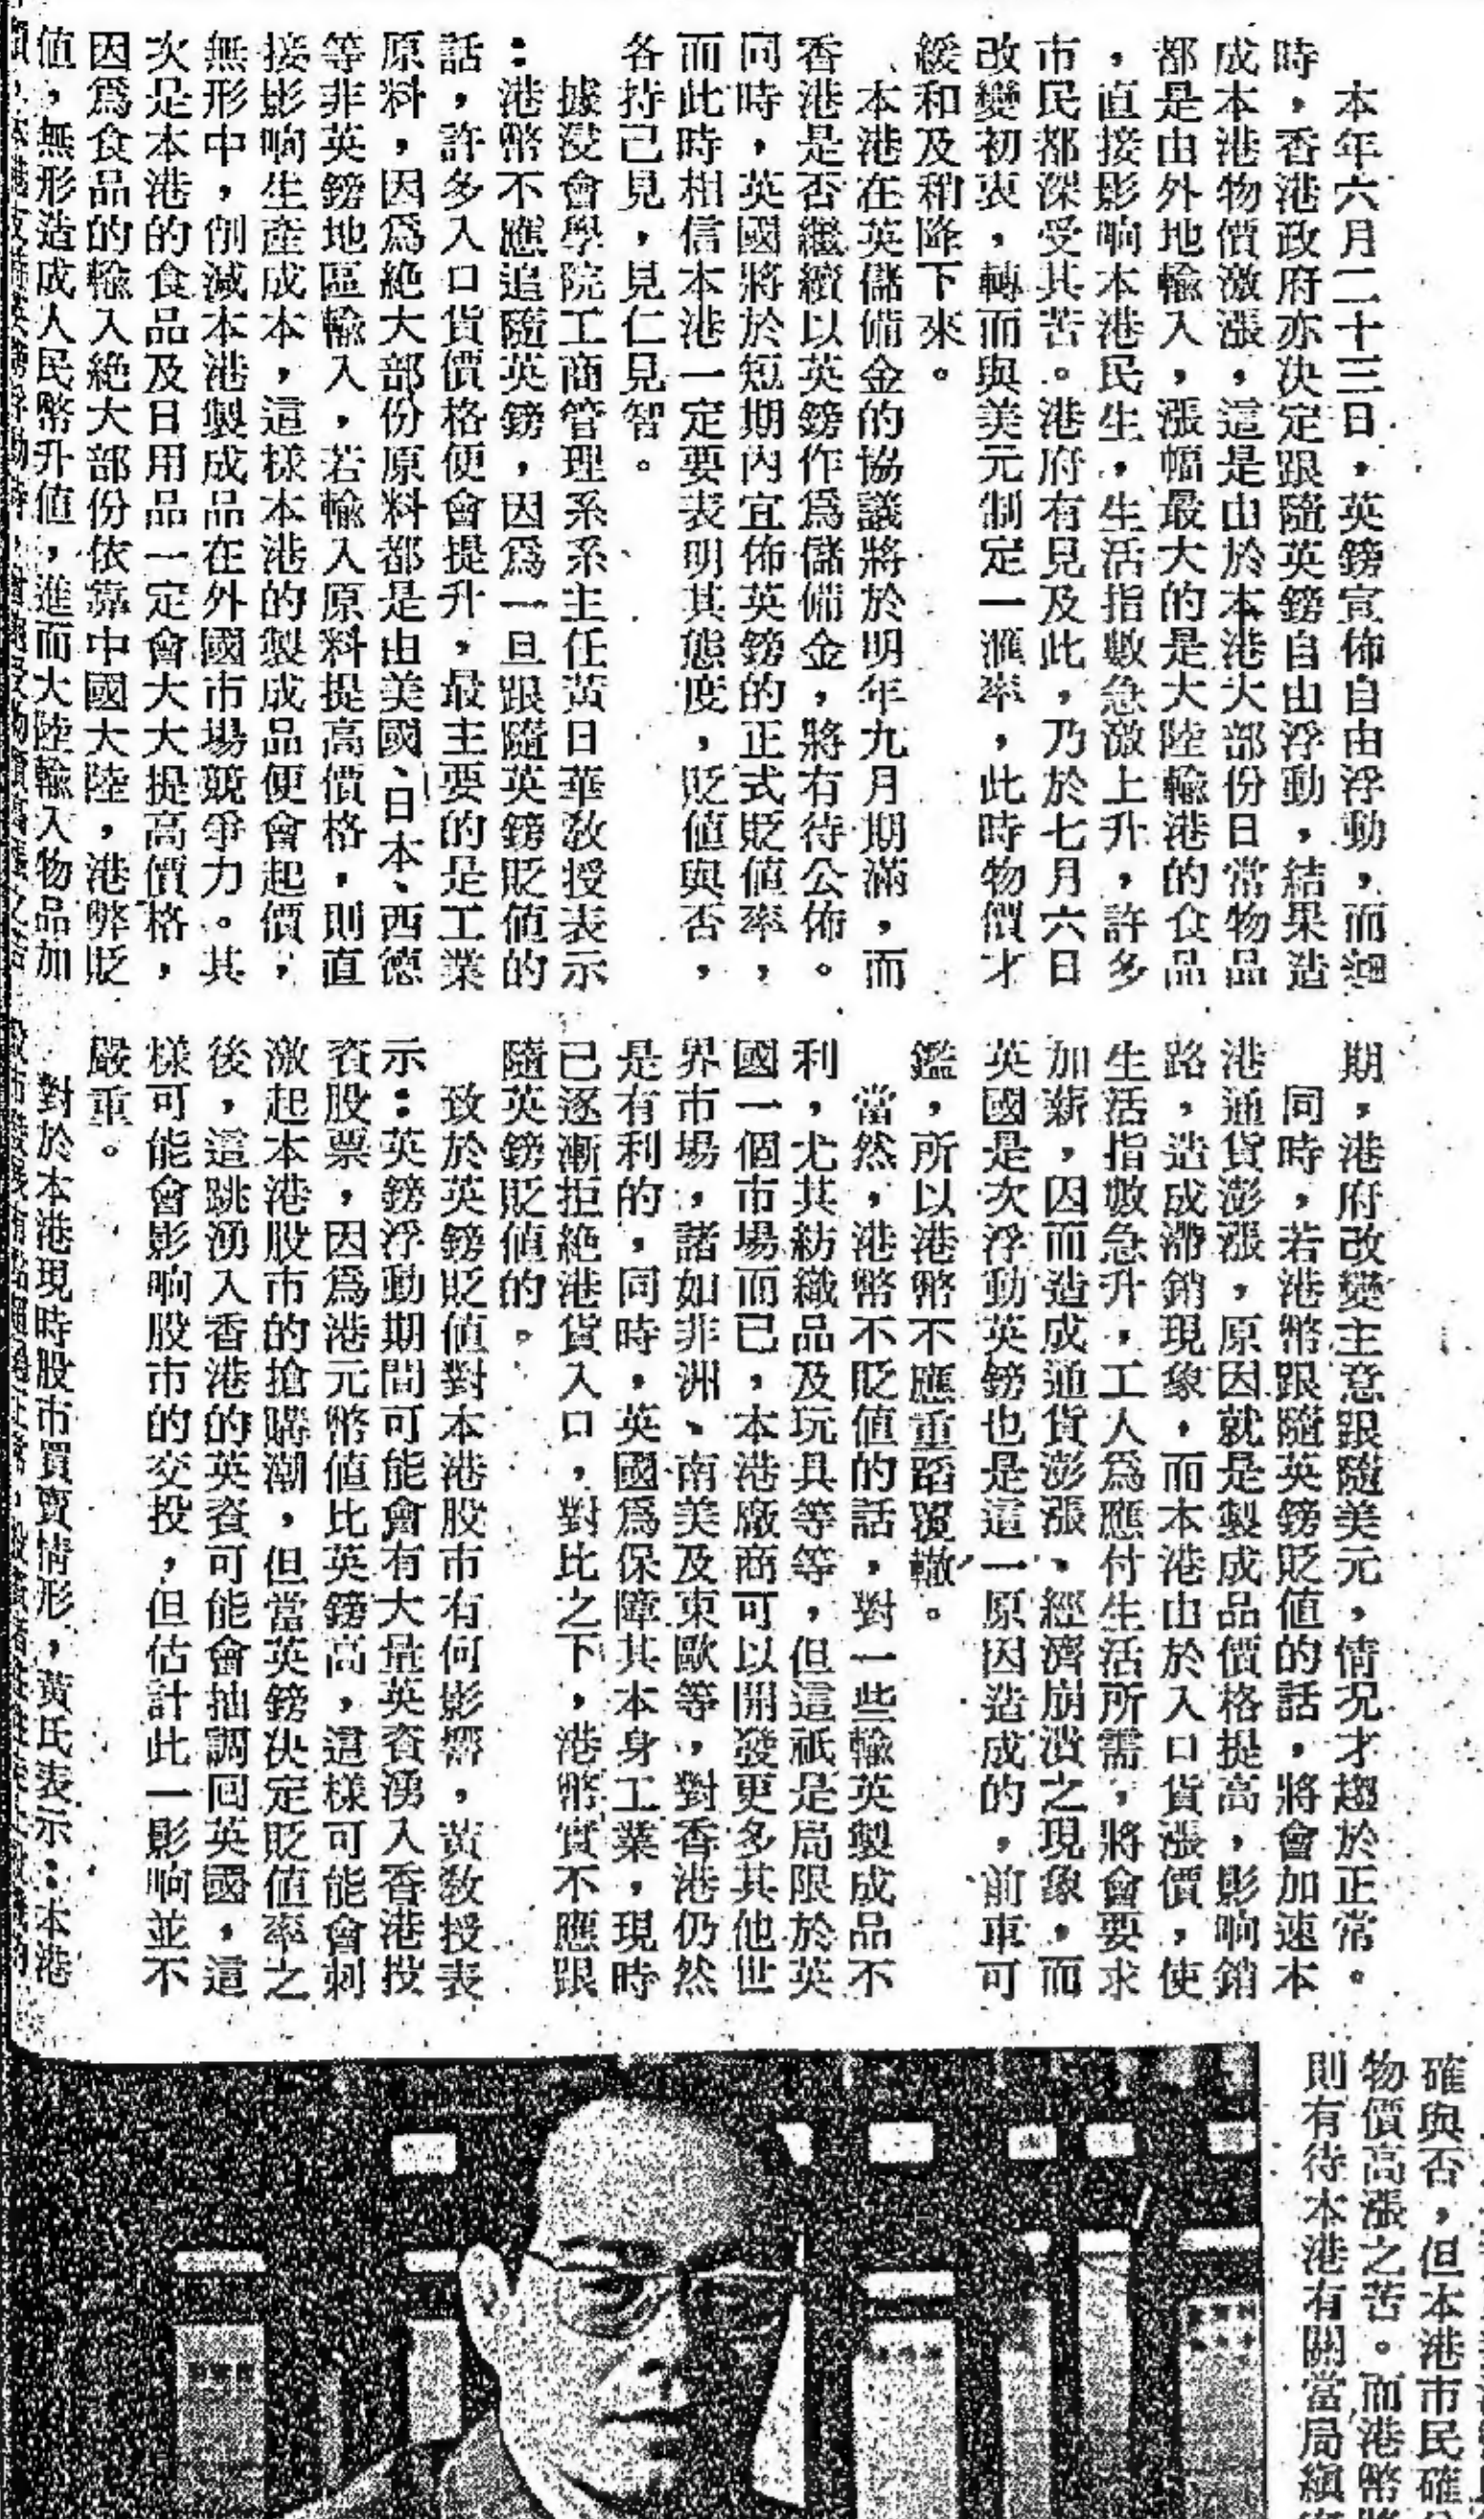 本年六月二十三日，英鎊宣佈自由浮動，而
時，香港政府亦決定跟隨英鎊自由浮動，結果造
成本港物價激漲，這是由於本港大部份日常物品
都是由外地輸入，漲幅最大的是大陸輸港的食品
，直接影响本港民生，生活指數急激上升，許多
市民都深受其苦。港府有見及此，乃於七月六日
改變初衷，轉而與美元制定一滙率，此時物價才
緩和及稍降下來。
本港在英儲備金的協議將於明年九月期滿，而
香港是否繼續以英鎊作爲儲備金，將有待公佈。
同時，英國將於短期內宣佈英鎊的正式貶値率，
而此時相信本港一定要表明其態度，貶値與否，
各持己見，見仁見智。
據浸會學院工商管理系系主任黃日華敎授表示
：港幣不應追隨英鎊，因爲一旦跟隨英鎊貶値的
話，許多入口貨價格便會提升，最主要的是工業
原料，因爲絶大部份原料都是由美國、日本、西德
等非英鎊地區輸入，若輸入原料提高價格，則直
接影响生產成本，這樣本港的製成品便會起價，
無形中，削減本港製成品在外國市場競爭力。其
次是本港的食品及日用品一定會大大提高價格，
因爲食品的輸入絶大部份依靠中國大陸，港弊貶
値，無形造成人民幣升値，進而大陸輸入物品加
期，港府改變主意跟隨美元，情況才趨於正常。
同時，若港幣跟隨英鎊貶値的話，將會加速本
港通貨澎漲，原因就是製成品價格提高，影响銷
路，造成滯銷現象，而本港由於入口貨漲價，使
生活指數急升，工人爲應付生活所需，將會要求
加薪，因而造成通貨澎漲、經濟崩潰之現象，而
英國是次浮動英鎊也是這一原因造成的，前車可
鑑，所以港幣不應重蹈覆轍。
當然，港幣不貶値的話，對一些輸英製成品不
利，尤其紡織品及玩具等等，但這祇是局限於英
國一個市場而已，本港廠商可以開發更多其他世
界市場，諸如非洲、南美及東歐等，對香港仍然
是有利的，同時，英國爲保障其本身工業，現時
已逐漸拒絶港貨入口，對比之下，港幣實不應跟
隨英鎊貶値的。
致於英鎊貶値對本港股市有何影響，黃敎授表
示：英鎊浮動期間可能會有大量英資湧入香港投
資股票，因爲港元幣値比英鎊高，這樣可能會刺
激起本港股市的搶購潮，但當英鎊決定貶値率之
後，這跳湧入香港的英資可能會抽調囘英國，這
樣可能會影响股市的交投，但估計此一影响並不
嚴重。
對於本港現時股市買賣情形，黃氏表示：本港
確與否，但本港市民確
物價高漲之苦。而港幣
則有待本港有關當局縝